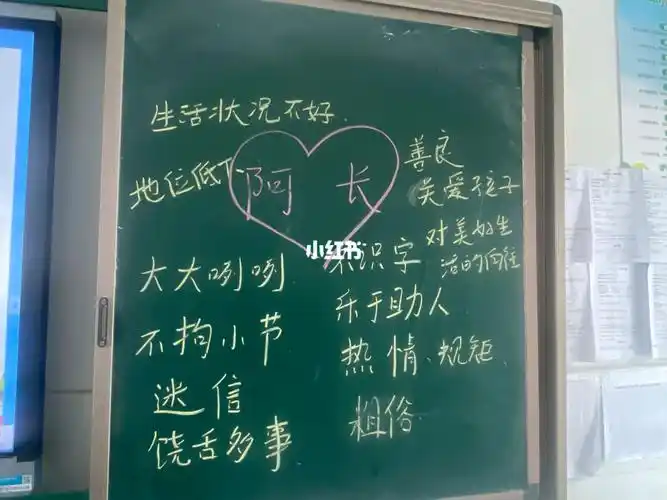 生活状况不好.
地位低下
阿 长
善良
关爱孩子
对美好生
活的向往
小红书
大大咧咧
不识字
不拘小节
乐于助人
迷信
热情、规矩.
饶舌多事
粗俗.